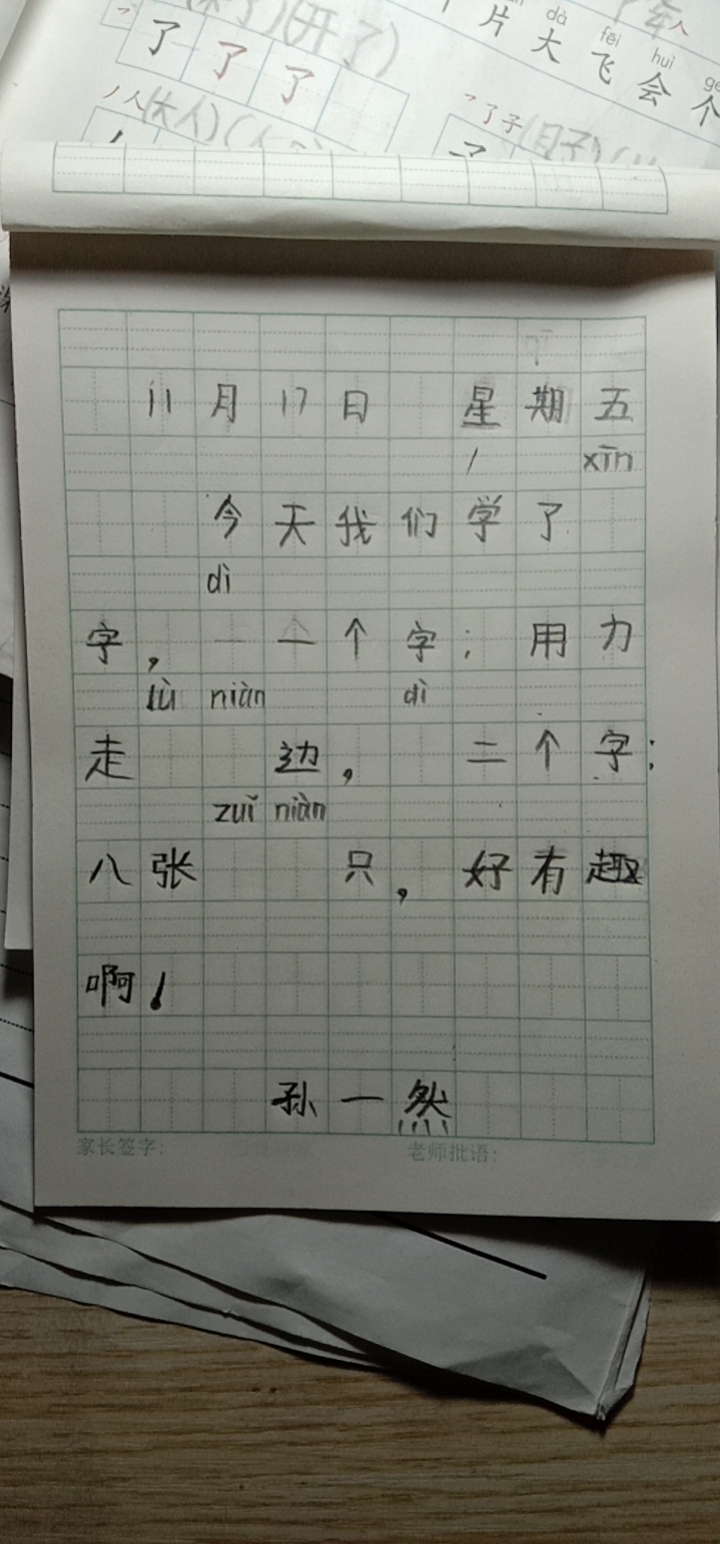 了 了 了
(开了)
dà fēi huì
片 大 飞 会 个
人
(大人)
了子
11月17日 星期五
xīn
今天我们学了
dì
字，一一个字；用力
lù niàn dì
走 边， 二个字；
zuǐ niàn
八张 只，好有趣
啊！
孙一然
家长签字： 老师批语：